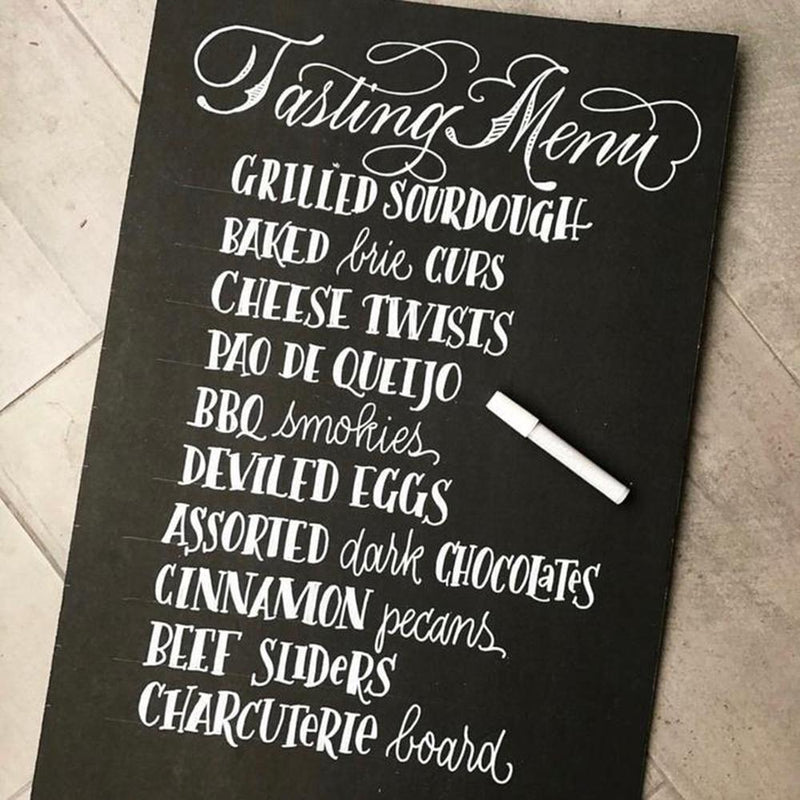 Tasting Menu
GRILLED SOURDOUGH
BAKED brie CUPS
CHEESE TWISTS
PAO DE QUEIJO
BBQ smokies
DEVILED EGGS
ASSORTED dark CHOCOLaTeS
CINNAMON pecans
BEEF SLIDeRS
CHARCUTeRIe board